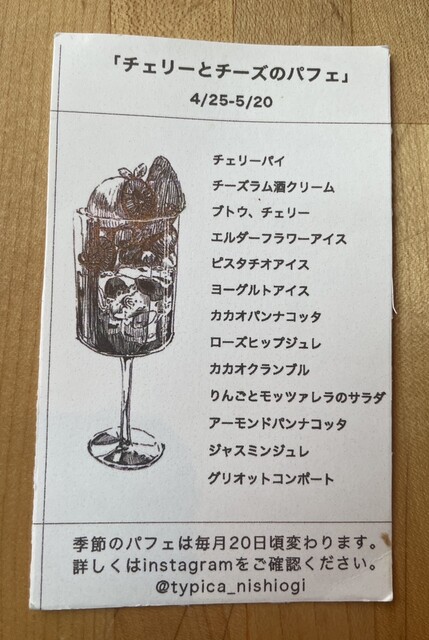 「チェリーとチーズのパフェ」
4/25-5/20
チェリーパイ
チーズラム酒クリーム
ブトウ、チェリー
エルダーフラワーアイス
ピスタチオアイス
ヨーグルトアイス
カカオパンナコッタ
ローズヒップジュレ
カカオクランブル
りんごとモッツァレラのサラダ
アーモンドパンナコッタ
ジャスミンジュレ
グリオットコンポート
季節のパフェは毎月20日頃変わります。
詳しくはinstagramをご確認ください。
@typica_nishiogi